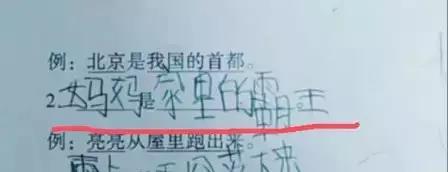 例：北京是我国的首都。
2.妈妈是家里的霸王
例：亮亮从屋里跑出来。